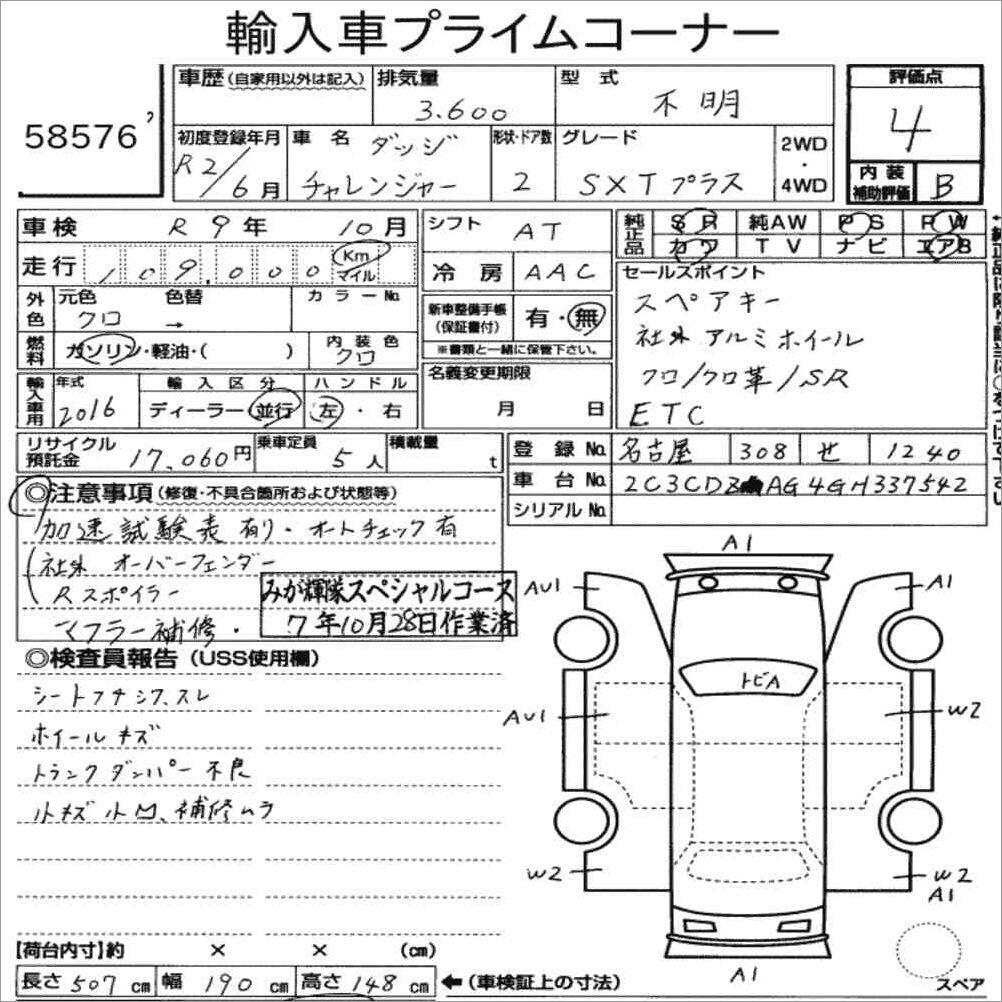 輸入車プライムコーナー
58576
車歴(自家用以外は記入) 排気量 3.600 型式 不明 評価点 4
初度登録年月 R2/6月 車名 ダッジ チャレンジャー 形状・ドア数 2 グレード SXTプラス 2WD・4WD 内装補助評価 B
車検 R 9年 10月 シフト AT 純正品 SR 純AW PS PW
走行 109.000 Km マイル 冷房 AAC カワ TV ナビ エアB
外色 元色 クロ 色替 → カラーNo. 新車整備手帳(保証書付) 有・無 ※書類と一緒に保管下さい。
燃料 ガソリン・軽油・( ) 内装色 クロ
セールスポイント
スペアキー
社外アルミホイール
クロ/クロ革/SR
ETC
輸入車用 年式 2016 輸入区分 ディーラー・並行 ハンドル 左・右 名義変更期限 月 日
リサイクル預託金 17,060円 乗車定員 5人 積載量 t
登録No. 名古屋 308 せ 1240
車台No. 2C3CDZAG4GH337542
シリアルNo.
◎注意事項(修復・不具合箇所および状態等)
加速試験表有り・オートチェック有
社外オーバーフェンダー
Rスポイラー
マフラー補修・
みが輝隊スペシャルコース
7年10月28日作業済
◎検査員報告(USS使用欄)
シートフチシワ、スレ
ホイールキズ
トランクダンパー不良
小キズ小凹、補修ムラ
A1
AU1 A1
トビA
AU1 W2
W2 W2
A1
A1
スペア
【荷台内寸】約 × × (cm)
長さ 507 cm 幅 190 cm 高さ 148 cm ←(車検証上の寸法)